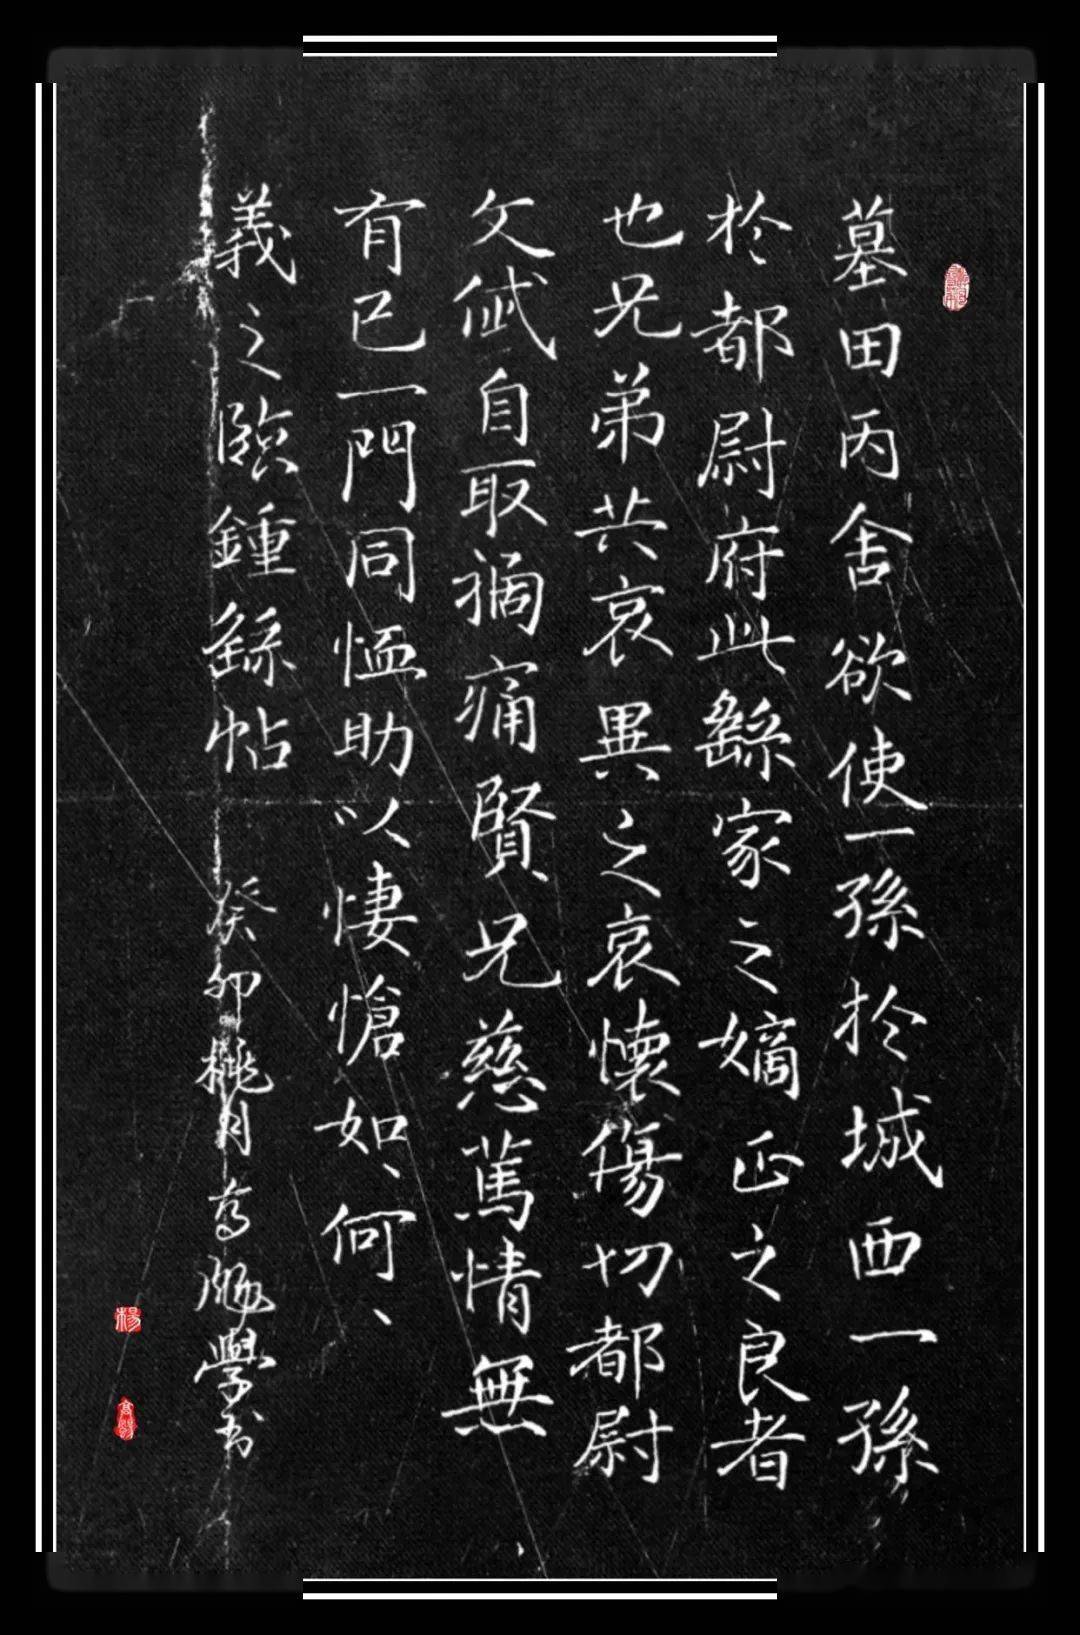 墓田丙舍欲使一孫於城西一孫
於都尉府此繇家之嫡正之良者
也兄弟共哀異之哀懷傷切都尉
文俄自取禍痛賢兄慈篤情無
有已一門同恤助以悽愴如、何、
羲之臨鍾繇帖
癸卯桃月高陽學书
楊